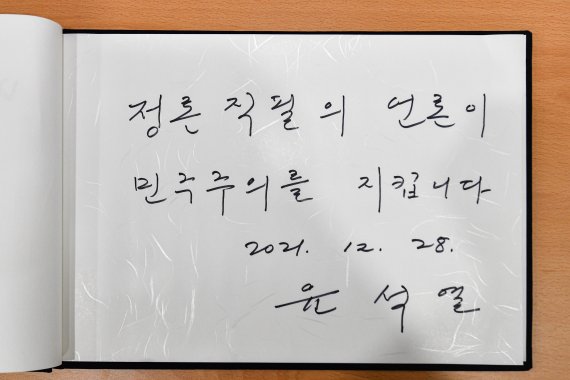 정론 직필의 언론이
민주주의를 지킵니다
2021. 12. 28.
윤 석 열